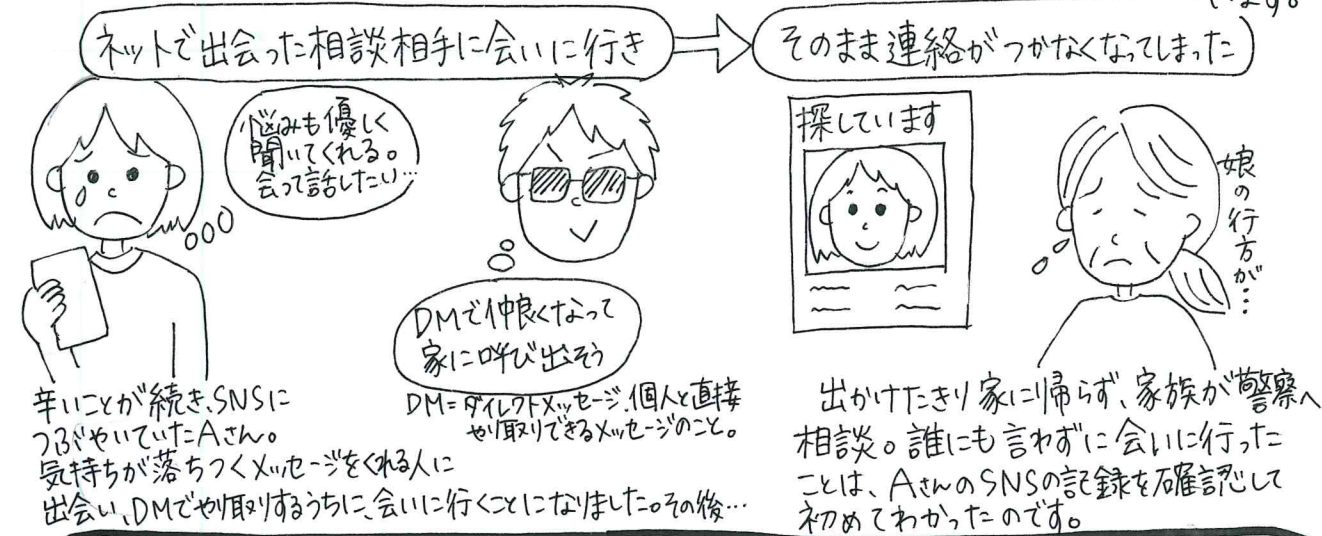 います。
ネットで出会った相談相手に会いに行き
そのまま連絡がつかなくなってしまった
悩みも優しく
聞いてくれる。
会って話したい…
DMで仲良くなって
家に呼び出そう
探しています
娘の行方が…
辛いことが続き、SNSに
つぶやいていたAさん。
気持ちが落ちつくメッセージをくれる人に
出会い、DMでやり取りするうちに、会いに行くことになりました。その後…
DM=ダイレクトメッセージ、個人と直接
やり取りできるメッセージのこと。
出かけたきり家に帰らず、家族が警察へ
相談。誰にも言わずに会いに行った
ことは、AさんのSNSの記録を確認して
初めてわかったのです。